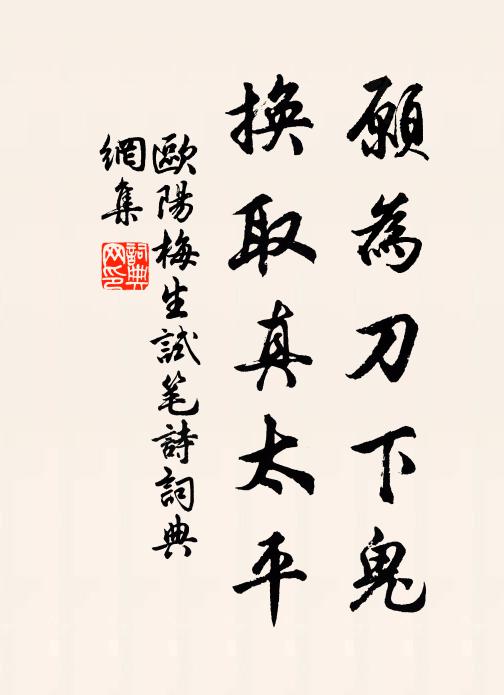 願為刀下鬼
換取真太平
歐陽梅生試笔詩詞典
網集
詞典
网印